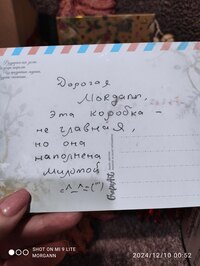 Дорогая
Morgann,
эта коробка –
не главная,
но она
наполнена
милотой
=^_^=(")
SHOT ON MI 9 LITE
MORGANN
2024/12/10 00:52